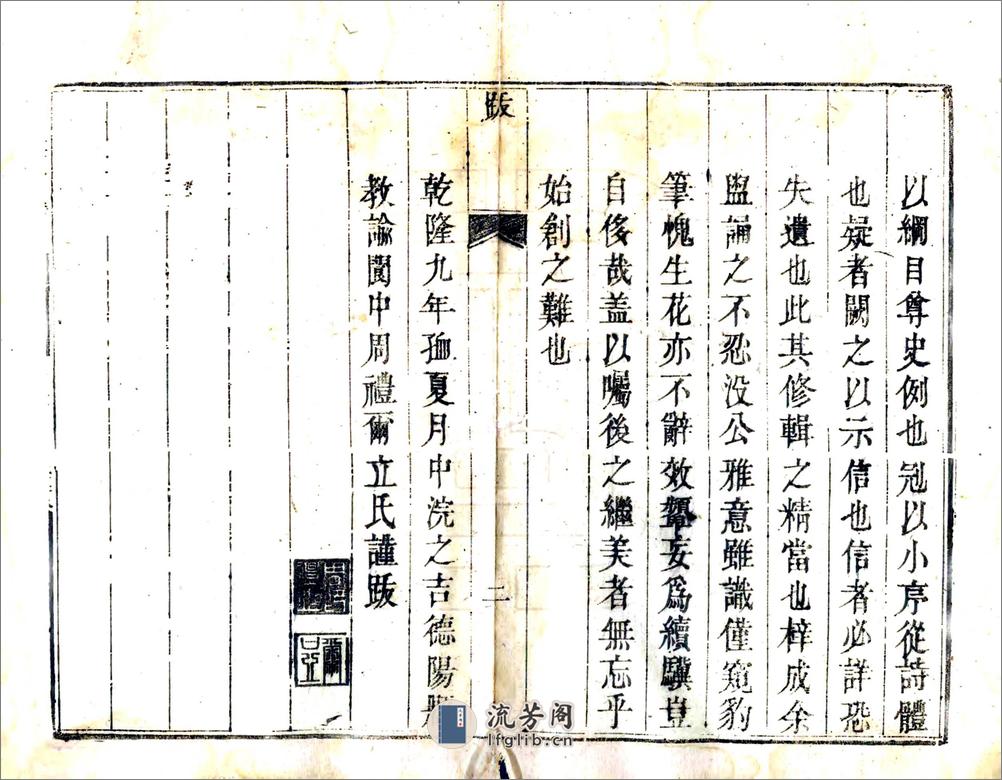 以綱目尊史例也冠以小序從詩體
也疑者闕之以示信也信者必詳恐
失遺也此其修輯之精當也梓成余
盥誦之不忍没公雅意雖識僅窺豹
筆愧生花亦不辭效顰妄爲續驥豈
自侈哉盖以囑後之繼美者無忘乎
始創之難也
跋
二
乾隆九年孤夏月中浣之吉德陽縣
教諭閬中周禮爾立氏謹跋
流芳阁
lfglib.cn